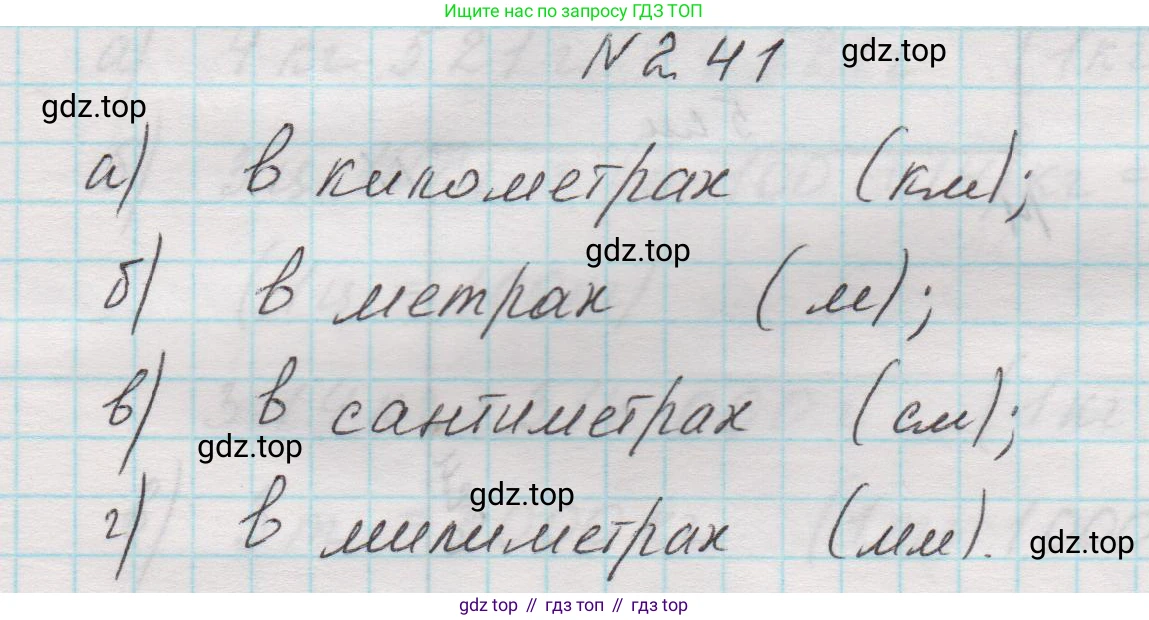 Ищите нас по запросу ГДЗ ТОП
N 2.41 gdz.top
gdz.top
а) в километрах (км);
gdz.top
б) в метрах (м);
в) в сантиметрах (см);
gdz.top
gdz.top
г) в милиметрах (мм). gdz.top
gdz top // гдз топ // gdz top